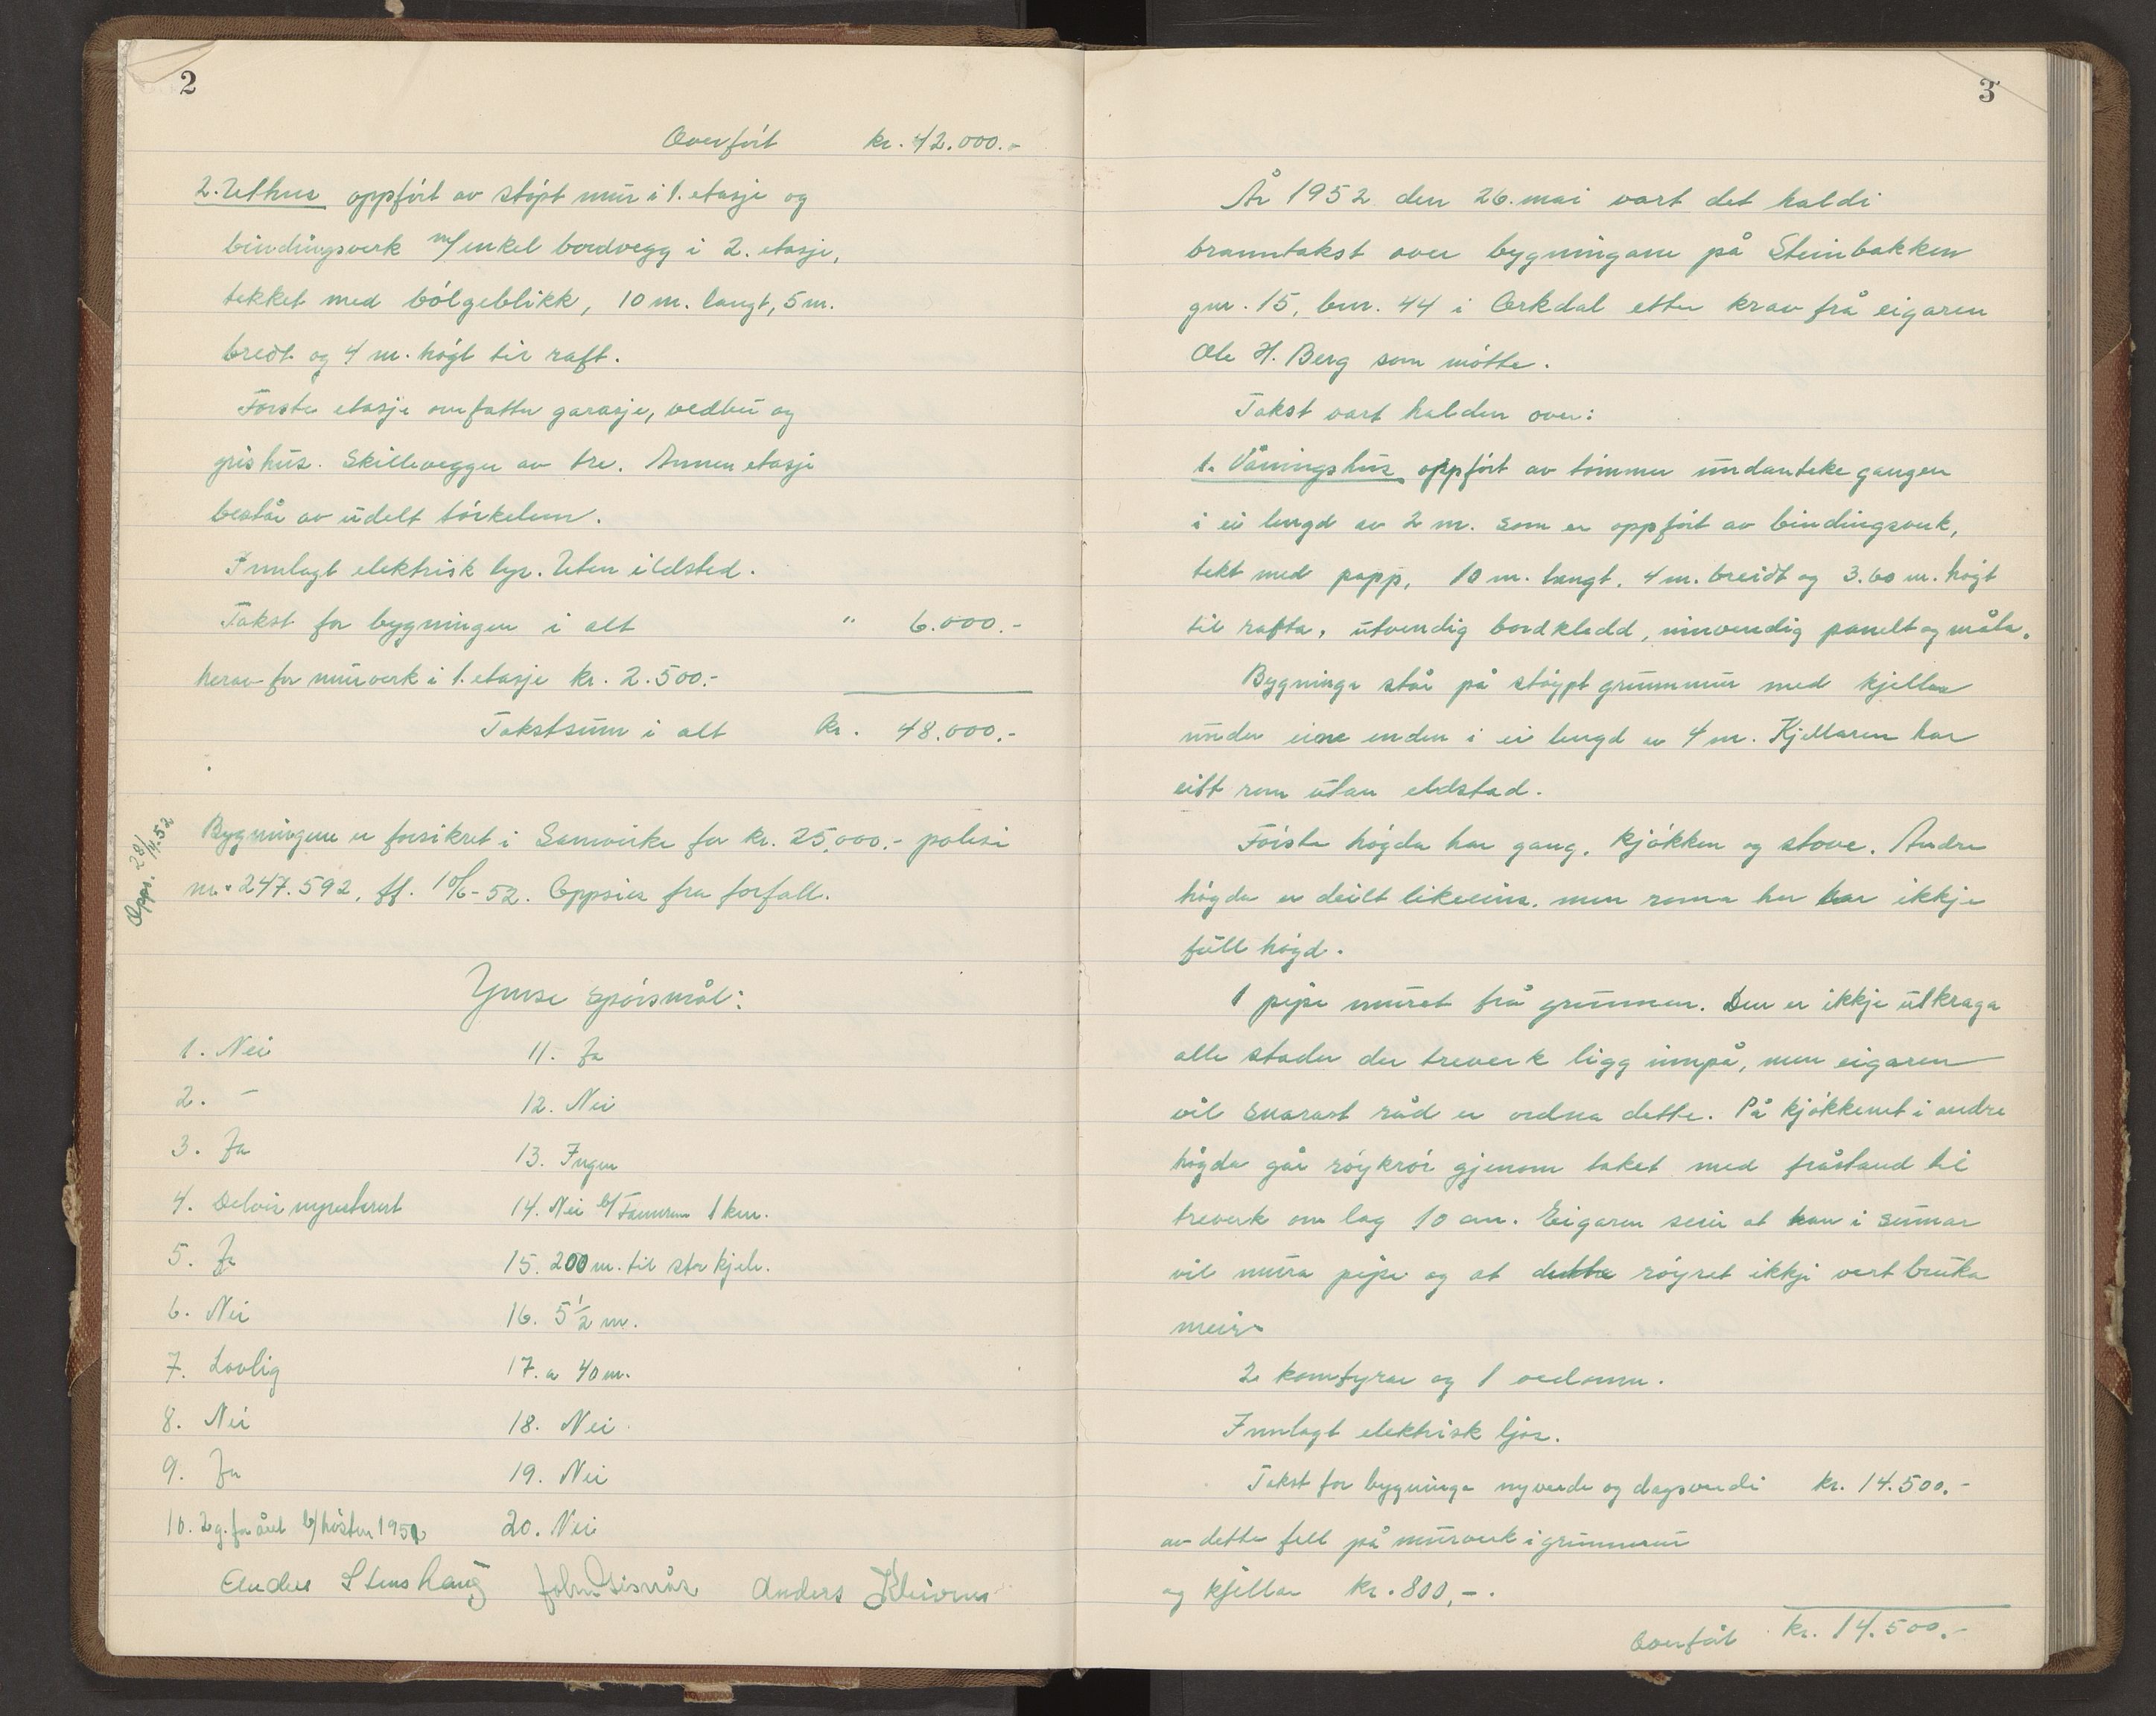 2
Overfört kr. 42.000.-
2. Uthus oppfört av stöpt mur i 1. etasje og
bindingsverk m/enkel bordvegg i 2. etasje,
tekket med bölgeblikk, 10 m. langt, 5 m.
bredt og 4 m. högt til raft.
Förste etasje omfatter garasje, vedbu og
grishus. Skillevegger av tre. Annen etasje
består av udelt törkelem.
Innlagt elektrisk lys. Uten ildsted.
Takst for bygningen i alt " 6.000.-
herav for murverk i 1. etasje kr. 2.500.-
Takstsum i alt kr. 48.000.-
Bygningene er forsikret i Samvirke for kr. 25.000.- polise
nr. 247.592, ff. 10/6-52. Oppsies fra forfall.
Opps. 28/
Ymse spörsmål:
1. Nei
2. -
3. Ja
4. Delvis
5. Ja
6. Nei
7. Lovlig
8. Nei
9. Ja
10. 2 g. for året b/hösten 1952
11. Ja
12. Nei
13. Ingen
14. Nei b/Fannrem 1 km.
15. 200 m. til
16. 5 1/2 m.
17. a 40 m.
18. Nei
19. Nei
20. Nei
Anders Stenshaug John Anders
3
År 1952 den 26. mai vart det haldi
branntakst over bygningane på Steinbakken
gnr. 15, bnr. 44 i Orkdal etter krav frå eigaren
Ole H. Berg som mötte.
Takst vart halden over:
1. Våningshus oppfört av tömmer undanteke gangen
i ei lengd av 2 m. som er oppfört av bindingsverk,
tekt med papp, 10 m. langt, 4 m. breidt og 3.60 m. högt
til rafta, utvendig bordkledd, innvendig panelt og måla.
Bygninga står på stöypt grunnmur med kjellar
under eine enden i ei lengd av 4 m. Kjellaren har
eitt rom utan eldstad.
Förste högda har gang, kjökken og stove. Andre
högda er deilt likeeins, men roma her har ikkje
full högd.
1 pipe muret frå grunnen. Den er ikkje utkraga
alle stader der treverk ligg innpå, men eigaren
vil snarast råd er ordna dette. På kjökkenet i andre
högda går röykrör gjenom taket med fråstand til
treverk om lag 10 cm. Eigaren seier at han i sumar
vil mura pipe og at dette röyret ikkje vert bruka
meir.
2 komfyrar og 1 vedomn.
Innlagt elektrisk ljos.
Takst for bygninga nyverde og dagsverdi kr. 14.500.-
av dette fell på murverk i grunnmur
og kjellar kr. 800,-.
Overfört kr. 14.500.-